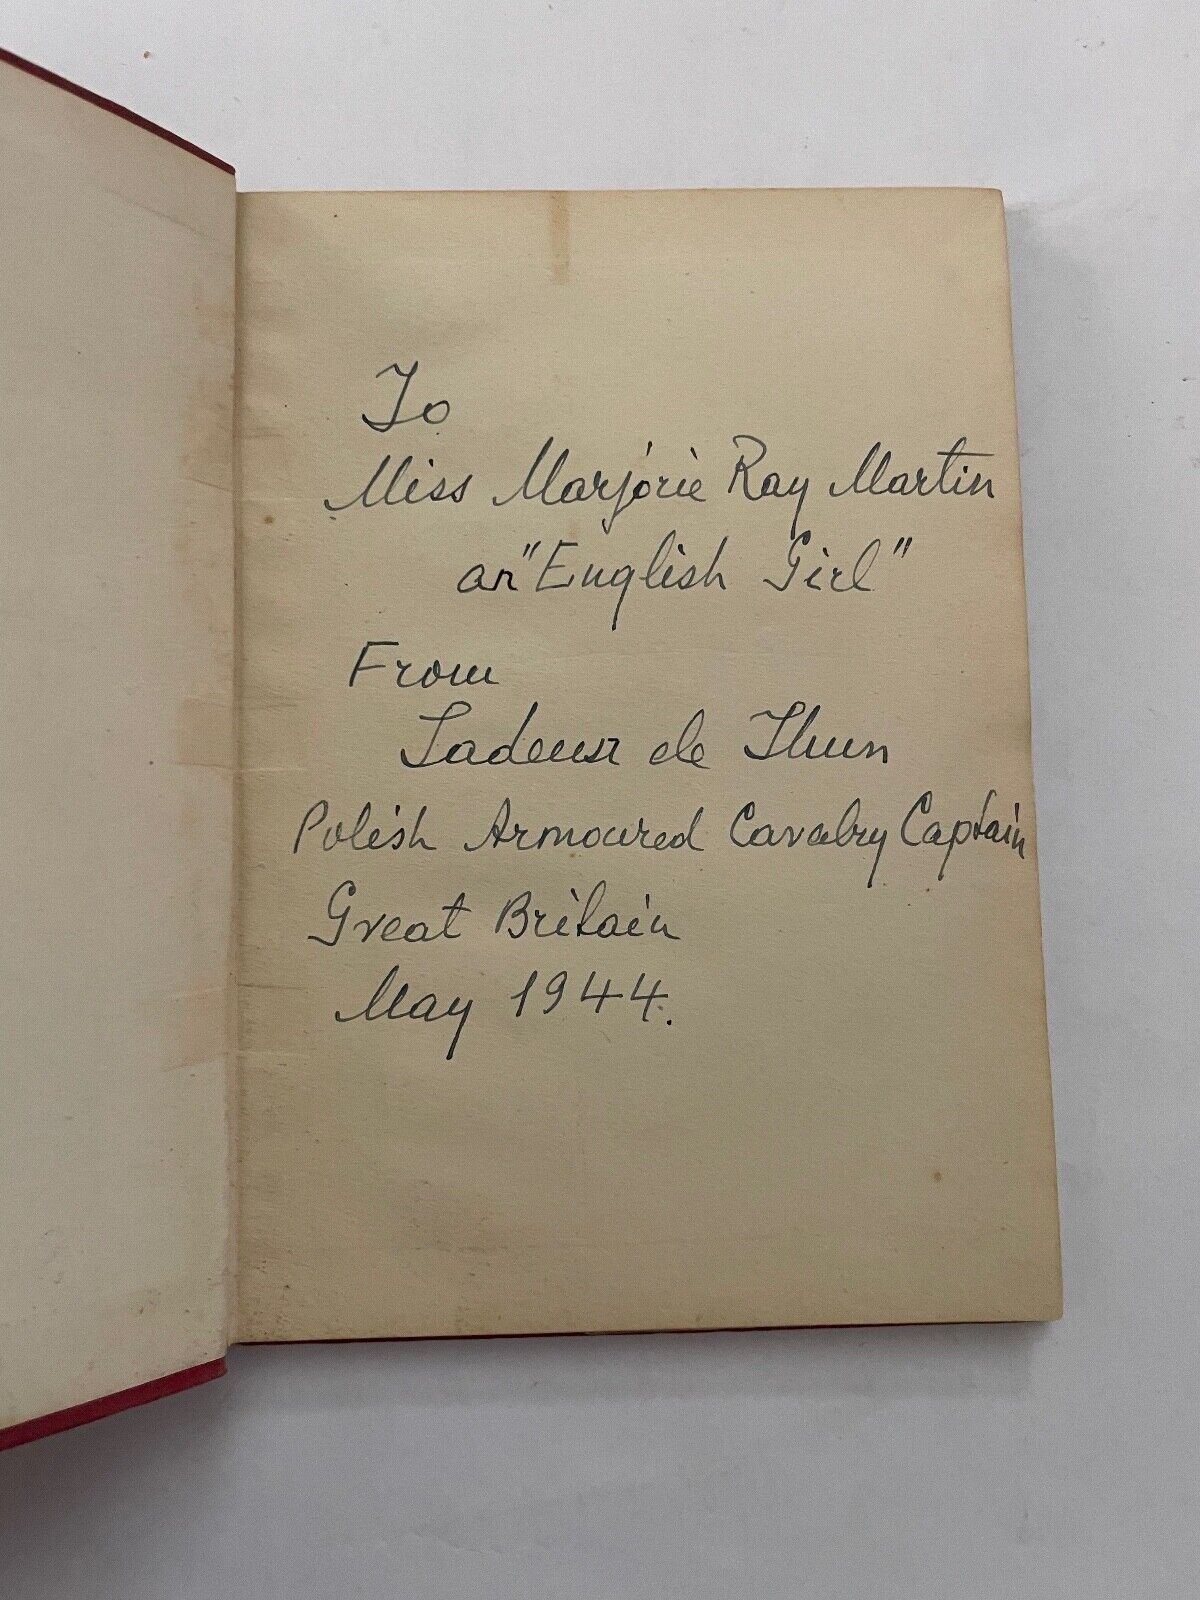 To
Miss Marjorie Ray Martin
an "English Girl"
From
Tadeusz de Thun
Polish Armoured Cavalry Captain
Great Britain
May 1944.